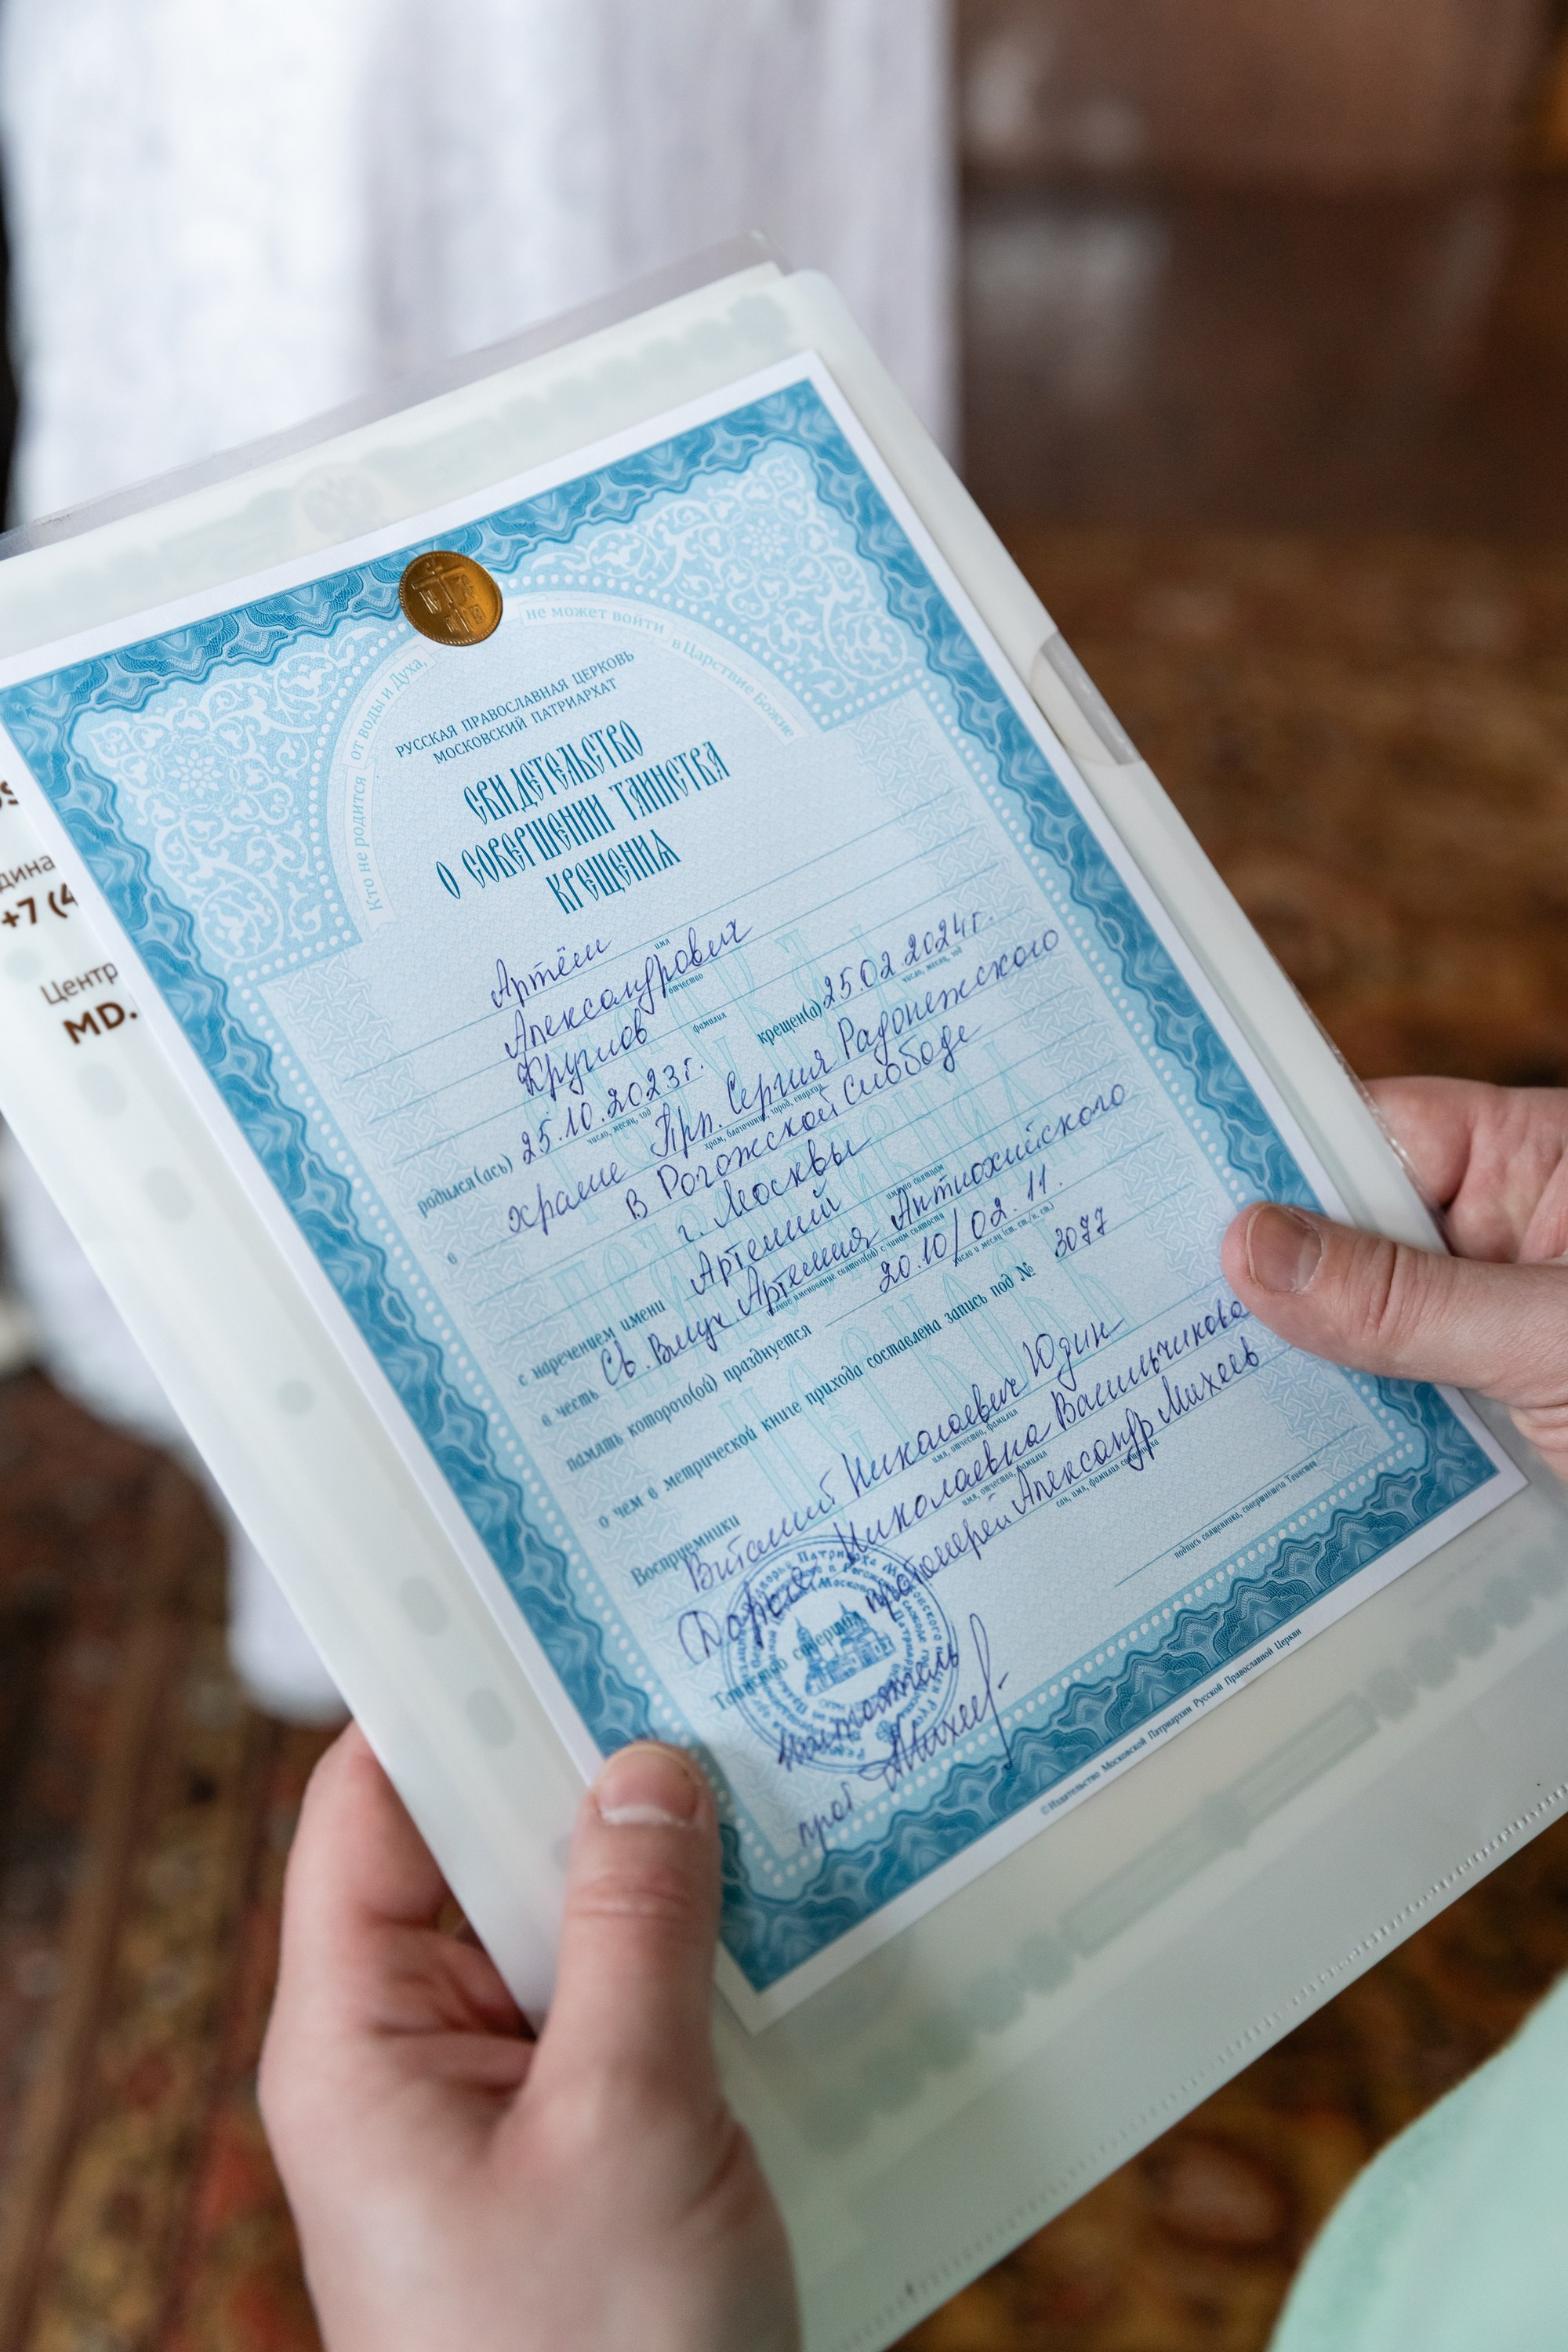 Кто не родится от воды и Духа, не может войти в Царствие Божие
РУССКАЯ ПРАВОСЛАВНАЯ ЦЕРКОВЬ
МОСКОВСКИЙ ПАТРИАРХАТ
СВИДЕТЕЛЬСТВО
О СОВЕРШЕНИИ ТАИНСТВА
КРЕЩЕНИЯ
Артём
имя
Александрович
отчество
Круглов
фамилия
родился(ась) 25.10.2023г. крещен(а) 25.02.2024г.
число, месяц, год число, месяц, год
в храме Прп. Сергия Радонежского
храм, благочиние, город, епархия
в Рогожской Слободе
г. Москвы
с наречением имени Артемий
имя по святцам
в честь Св. Влмуч Артемия Антиохийского
полное именование святого(ой) с чином святости
память которого(ой) празднуется 20.10/02.11.
число и месяц (ст. ст./н. ст.)
о чем в метрической книге прихода составлена запись под № 3077
Восприемники Виталий Николаевич Юдин
имя, отчество, фамилия
Дарья Николаевна Васильчикова
имя, отчество, фамилия
Таинство совершил протоиерей Александр Михеев
сан, имя, фамилия священника
подпись священника, совершившего Таинство
Настоятель
прот. АМихеев
©Издательство Московской Патриархии Русской Православной Церкви
дина
+7 (4
Центр
MD.